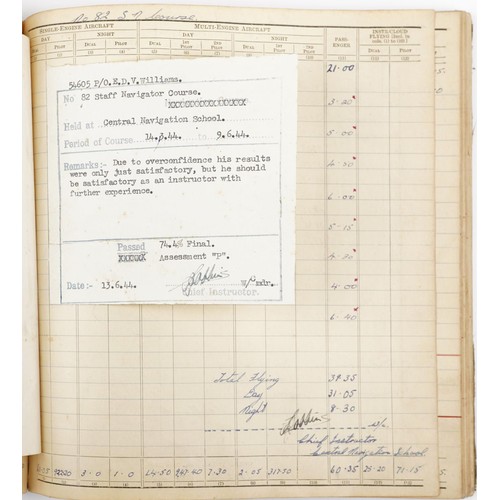 No 82 S.N. Course
SINGLE-ENGINE AIRCRAFT MULTI-ENGINE AIRCRAFT PASS-ENGER INSTR/CLOUD FLYING
DAY NIGHT DAY NIGHT
DUAL PILOT DUAL PILOT DUAL 1ST PILOT 2ND PILOT DUAL 1ST PILOT 2ND PILOT DUAL PILOT
54605 P/O.E.D.V.Williams.
No 82 Staff Navigator Course.
XXXXXXXXXXXXXXXX
Held at Central Navigation School.
Period of Course 14.3.44. to 9.6.44.
Remarks:- Due to overconfidence his results
were only just satisfactory, but he should
be satisfactory as an instructor with
further experience.
Passed 74.4% Final.
XXXXXX Assessment "P".
Date:- 13.6.44.
Chief Instructor.
21.00
5.00
6.00
5.15
4.00
6.40
Total Flying 39.35
Day 31.05
Night 8.30
Chief Instructor
Central Navigation School.
3.0 1.0 64.50 7.30 2.05 317.30 60.35 25.20 71.15